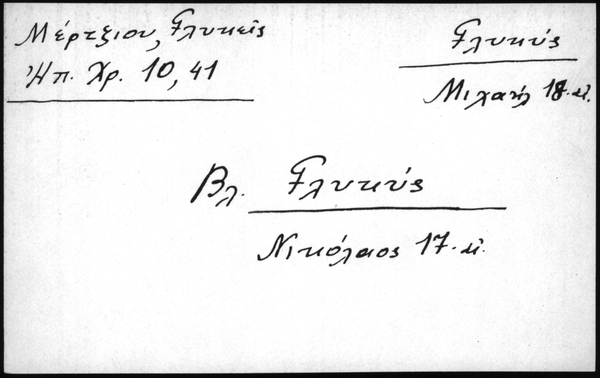 Μέρτζιου, Γλυκεῖς
Ἠπ. Χρ. 10, 41
Γλυκύς
Μιχαήλ 18. αἰ.
Βλ. Γλυκύς
Νικόλαος 17. αἰ.